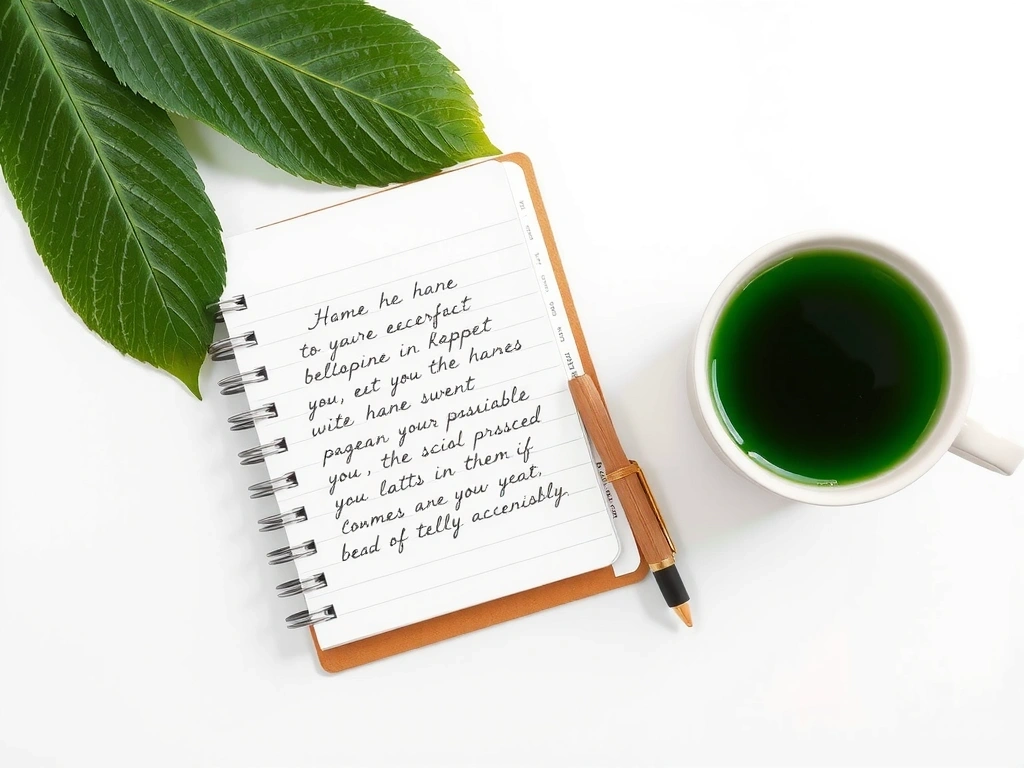 Hame he hane
to yaure eecerfact
bellopine in Rappet
you, eet you the hames
wite hane swent
pagean your pssuiable
you, the sciol prssced
you latts in them if
Commes are you yeat,
bead of telly accenisbly.